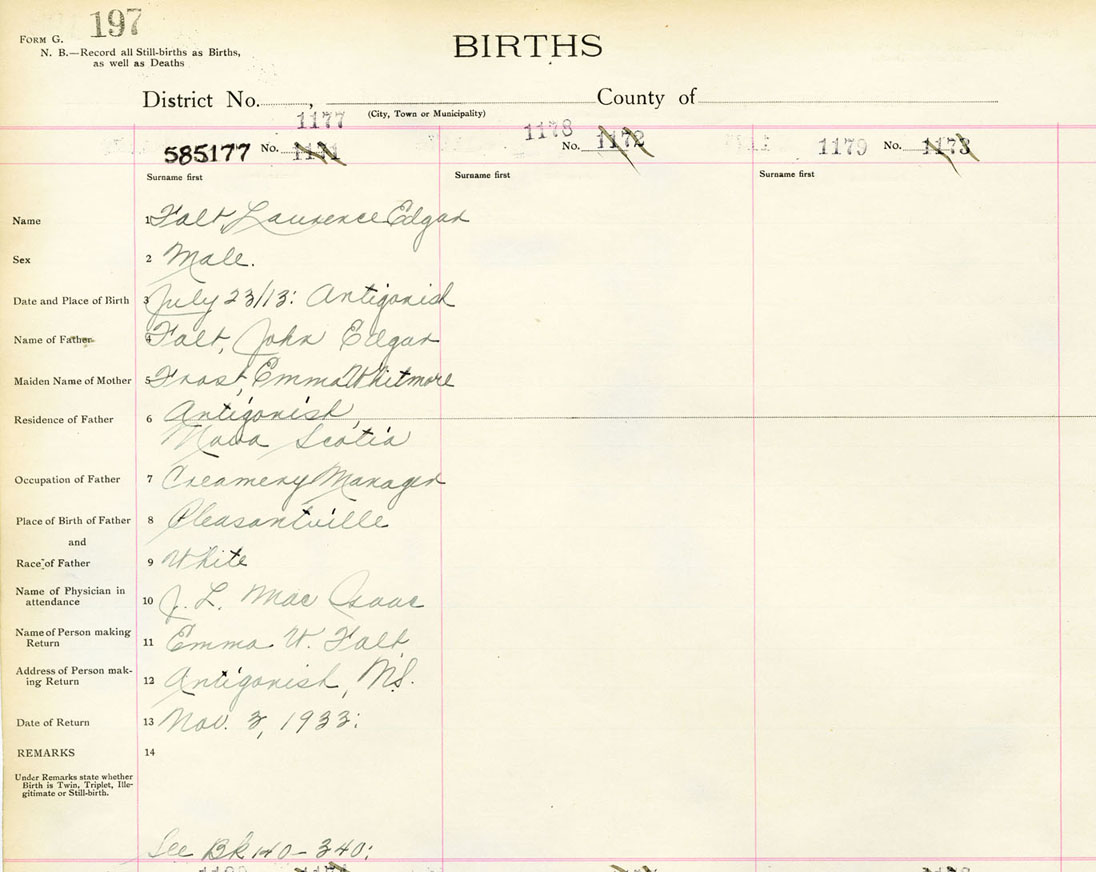 197
FORM G.
N. B.—Record all Still-births as Births,
as well as Deaths
BIRTHS
District No. , County of
(City, Town or Municipality)
1177 1178 1179
585177 No. No. 1172 No. 1173
Surname first Surname first Surname first
Name 1 Falt, Laurence Edgar
Sex 2 Male.
Date and Place of Birth 3 July 23/13: Antigonish
Name of Father 4 Falt, John Edgar
Maiden Name of Mother 5 Frost, Emma Whitmore
Residence of Father 6 Antigonish,
Nova Scotia
Occupation of Father 7 Creamery Manager
Place of Birth of Father 8 Pleasantville
and
Race of Father 9 White
Name of Physician in
attendance 10 J. L. Mac Isaac
Name of Person making
Return 11 Emma W. Falt,
Address of Person mak-
ing Return 12 Antigonish, N.S.
Date of Return 13 Nov. 3, 1933:
REMARKS 14
Under Remarks state whether
Birth is Twin, Triplet, Ille-
gitimate or Still-birth.
See Bk 140-340: